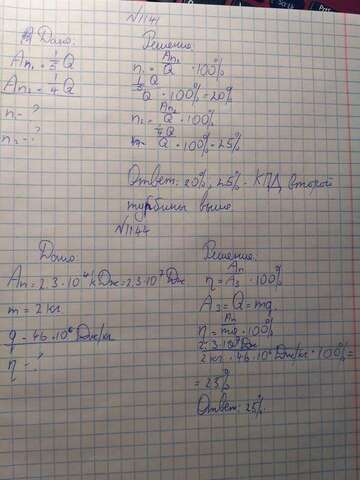 N1141
Дано:
Aп₁ = 1/5 Q
Aп₂ = 1/4 Q
η₁-?
η₂-?
Решение:
η₁ = Aп₁/Q · 100%
1/5 Q/Q · 100% = 20%
η₂ = Aп₂/Q · 100%
1/4 Q/Q · 100% = 25%
Ответ: 20%, 25% - КПД второй
турбины выше
N1144
Дано
Aп = 2,3 · 10⁴ кДж = 2,3 · 10⁷ Дж
m = 2 кг
q = 46 · 10⁶ Дж/кг
η - ?
Решение:
η = Aп/Aз · 100%
Aз = Q = mq
η = Aп/mq · 100%
2,3 · 10⁷ Дж/2 кг · 46 · 10⁶ Дж/кг · 100% =
= 25%
Ответ: 25%